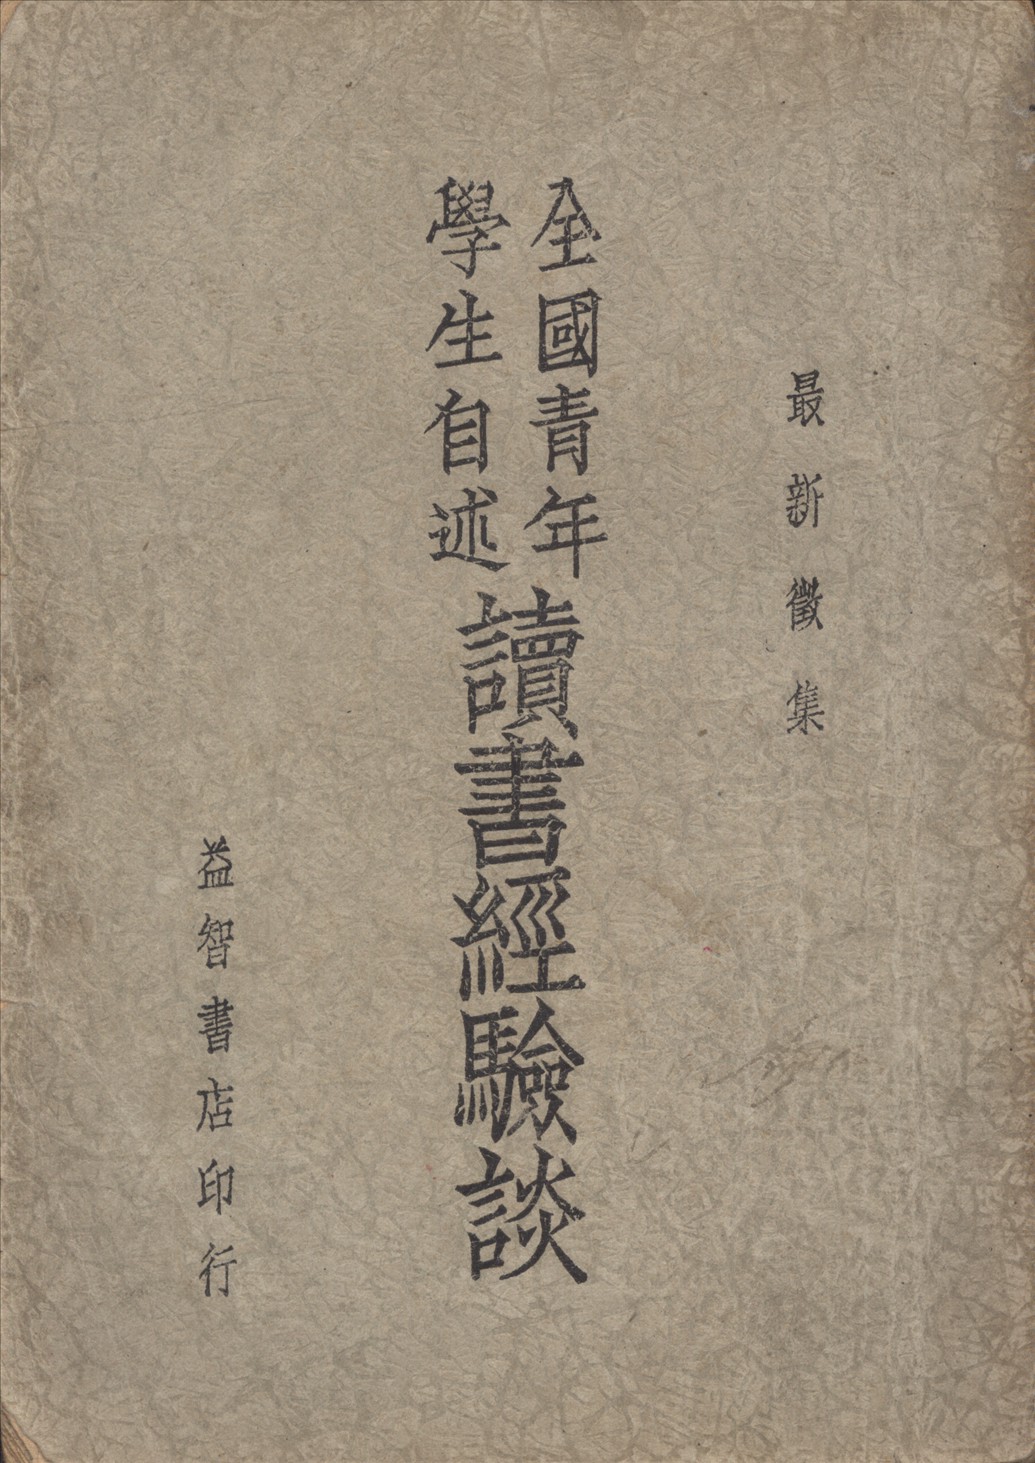 最新徵集
全國青年
學生自述
讀書經驗談
益智書店印行